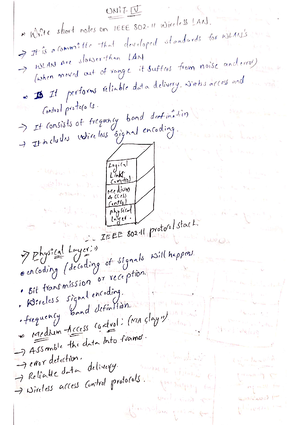 UNIT IV
* Write short notes on IEEE 802.11 wireless LAN.
→ It is a committe that developed standards for WLAN's
→ WLANs are slower than LAN
(when moved out of range it suffers from noise and error)
* It performs reliable data delivery, wireless access and
control protocols.
→ It consists of frequency band definition
→ It includes wireless signal encoding.
Logical
Link
Control
Medium
Access
Control
Physical
Layer.
∴ IEEE 802.11 protocol stack.
Physical Layer:
encoding / decoding of signals will happen
• Bit transmission or reception.
• Wireless signal encoding.
• frequency band definition
* Medium-Access control: (MAC layer)
→ Assemble the data into frames.
→ error detection.
→ Reliable data delivery
→ Wireless access control protocols.